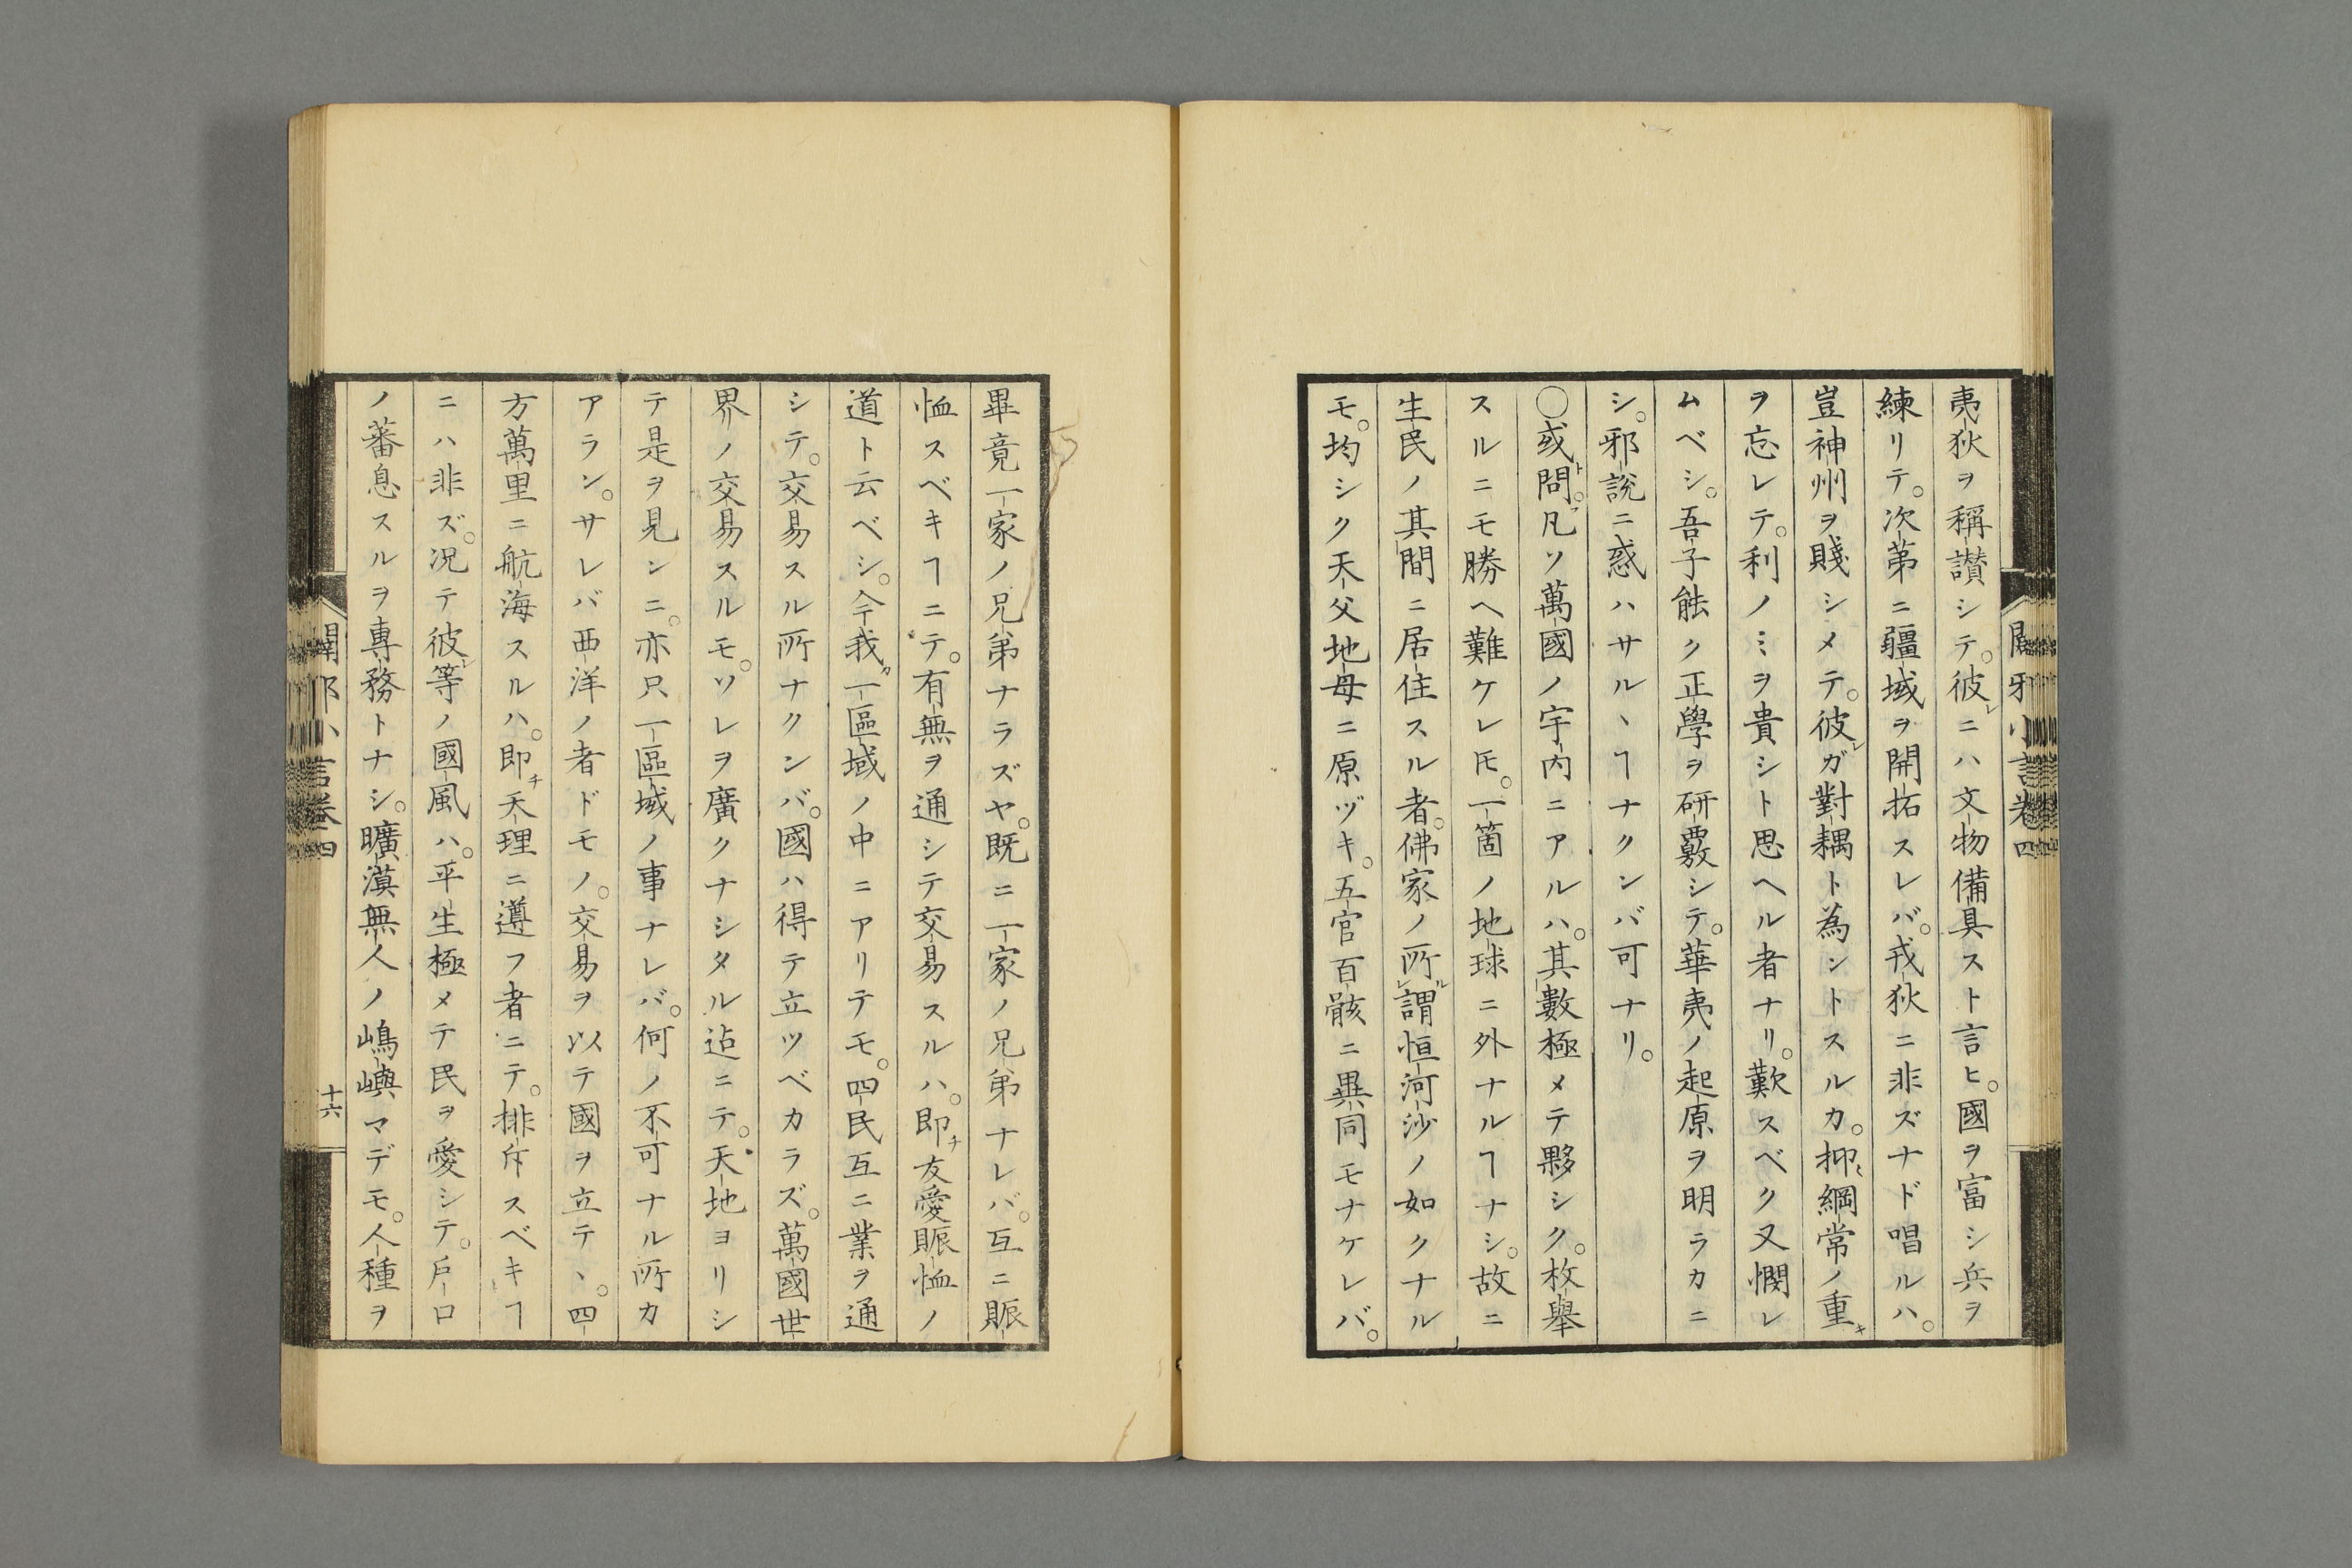 夷狄ヲ稱讃シテ。彼レニハ文物備具スト言ヒ。國ヲ富シ兵ヲ
練リテ。次第ニ疆域ヲ開拓スレバ。戎狄ニ非ズナド唱ルハ。
豈神州ヲ賤シメテ。彼レガ對耦ト為ントスルカ。抑〻綱常ノ重キ
ヲ忘レテ。利ノミヲ貴シト思ヘル者ナリ。歎スベク又憫レ
ムベシ。吾子能ク正學ヲ研覈シテ。華夷ノ起原ヲ明ラカニ
シ。邪說ニ惑ハサルヽヿナクンバ可ナリ。
○或ト問フ。凡ソ萬國ノ宇内ニアルハ。其數極メテ夥シク。枚擧
スルニモ勝ヘ難ケレ𪜈。一箇ノ地球ニ外ナルヿナシ。故ニ
生民ノ其間ニ居住スル者。佛家ノ所ルレ謂恒河沙ノ如クナル
モ。均シク天父地母ニ原ヅキ。五官百骸ニ異同モナケレバ。
闢邪小言卷四
畢竟一家ノ兄弟ナラズヤ。既ニ一家ノ兄弟ナレバ。互ニ賑
恤スベキヿニテ。有無ヲ通シテ交易スルハ。即チ友愛賑恤ノ
道ト云ベシ。今我ガ一區域ノ中ニアリテモ。四民互ニ業ヲ通
シテ。交易スル所ナクンバ。國ハ得テ立ツベカラズ。萬國世
界ノ交易スルモ。ソレヲ廣クナシタル迄ニテ。天地ヨリシ
テ是ヲ見ンニ。亦只一區域ノ事ナレバ。何ノ不可ナル所カ
アラン。サレバ西洋ノ者ドモノ。交易ヲ以テ國ヲ立テヽ。四
方萬里ニ航海スルハ。即チ天理ニ遵フ者ニテ。排斥スベキヿ
ニハ非ズ。況テ彼レ等ノ國風ハ。平生極メテ民ヲ愛シテ。戶口
ノ蕃息スルヲ專務トナシ。曠漠無人ノ嶋嶼マデモ。人種ヲ
闢邪小言卷四
十六